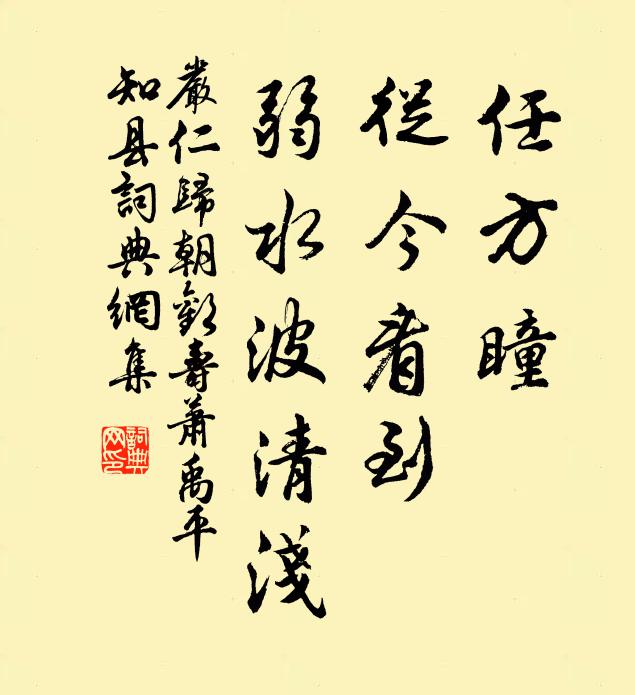 任方瞳
從今看到
弱水波清淺
嚴仁歸朝歡壽蕭禹平
知县詞典網集
詞典
网印